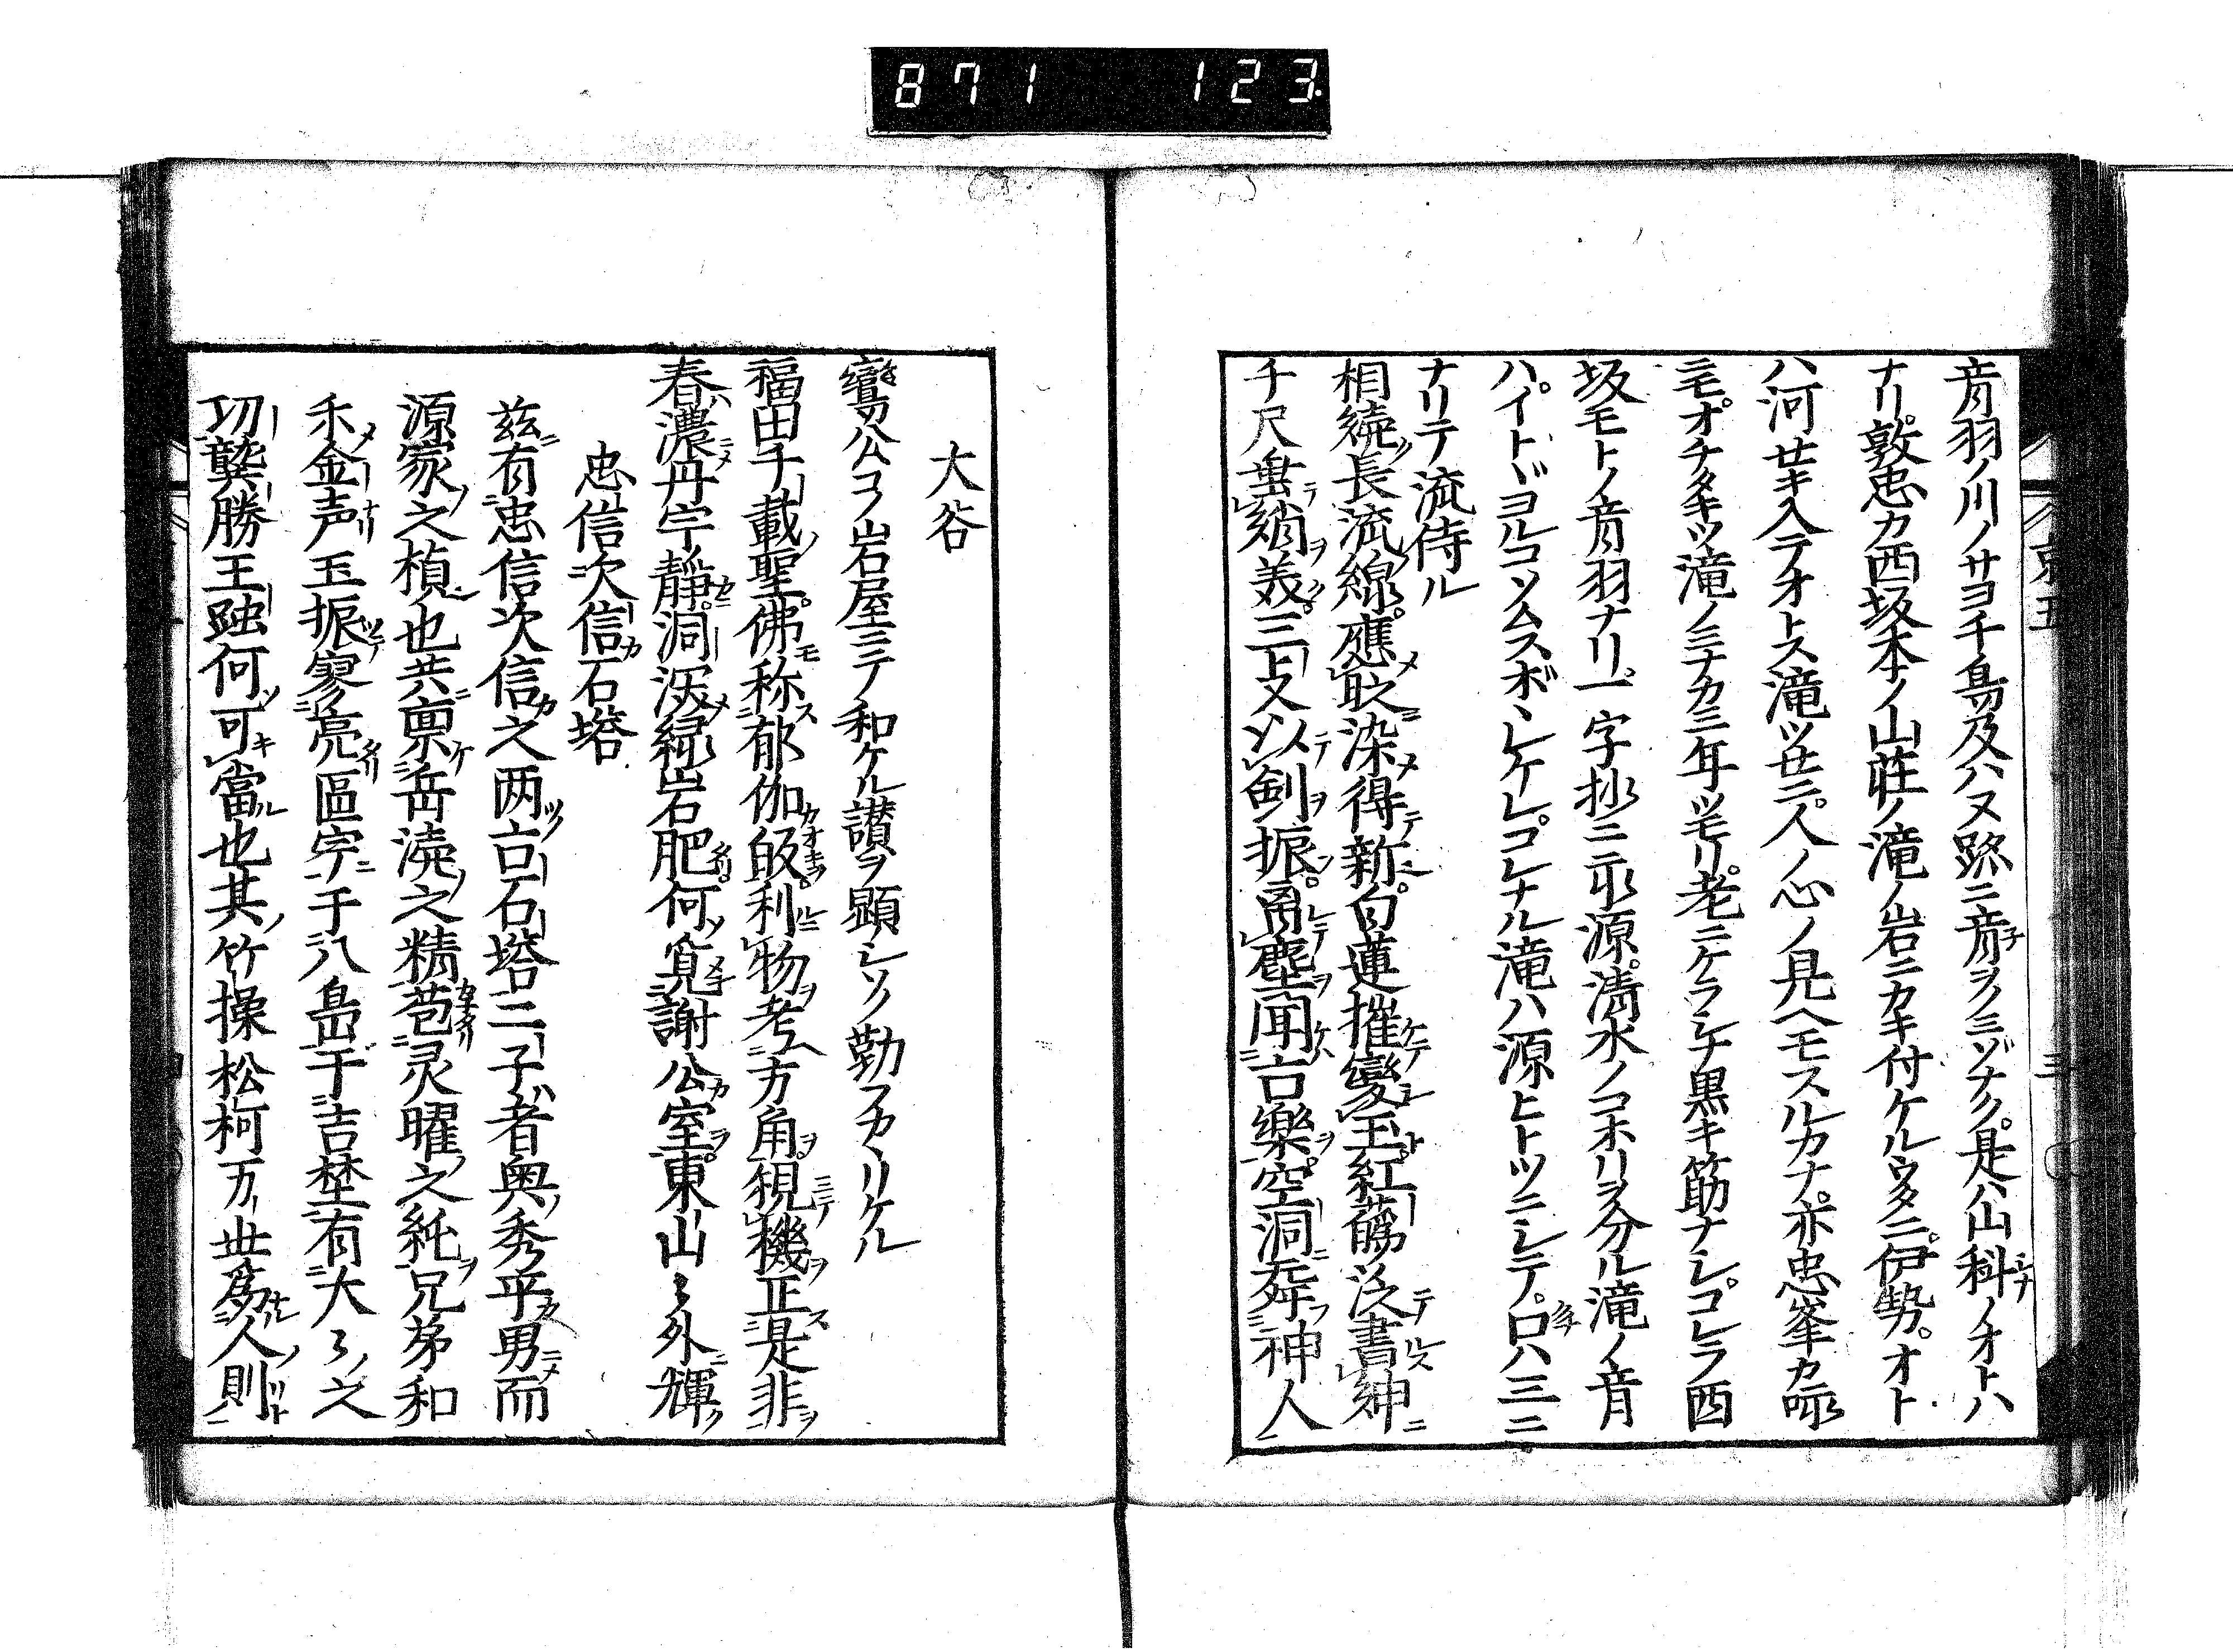 871 123
音羽ノ川ノサヨ千鳥及ハヌ跡ニ音ヲノミゾナク。是ハ山科ノオトハ
ナリ。敦忠カ西坂本ノ山荘ノ滝ノ岩ニカキ付ケルウタニ。伊勢。オト
ハ河せキ入テオトス滝ツせニ。人ノ心ノ見ヘモスルカナ。亦忠峯カ哥
ニモ。オチタキツ滝ノミナカミ年ツモリ。老ニケラシナ黒キ筋ナシ。コレラ西
坂モトノ音羽ナリ。一字抄ニ 源清。清水ノコホリヲ分ル滝ノ音
ハ。イトヾヨルコソムスボヽレケレ。コレナル滝ハ源ヒトツニシテ。只ハ三ニ
ナリテ流侍ル
相続長流線。應取染得新。白蓮摧變玉。紅蕅泛書紳
千尺垂綃義。三上又以剣振。禹塵聞古樂。空洞舞神人
大谷
鸞公コノ岩屋ニテ和ケル讃ヲ顕シソノ勤フカヽリケル
福田千載聖。佛称郁伽皈。利物考方角。猊機正是非
春濃丹宇靜。洞深緑岩肥。何覓謝公室。東山々外輝
忠信次信石塔
茲有忠信次信之两古石塔二子者奥秀平男而
源家之楨也共禀岳瀆之精苞灵曜之純兄弟和
禾金声玉振寥亮區宇于八島于吉埜有大々之
功龔勝王蠋何可當也其竹操松柯万世為人則